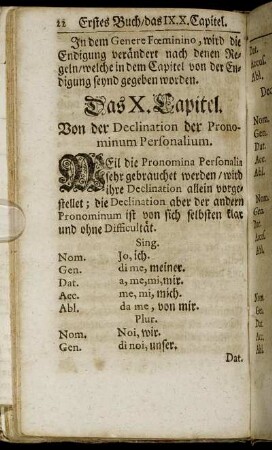 22 Erstes Buch/das IX.X.Capitel.
In dem Genere Fœminino, wird die
Endigung verändert nach denen Re-
geln/welche in dem Capitel von der En-
digung seynd gegeben worden.
Das X. Capitel.
Von der Declination der Prono-
minum Personalium.
WEil die Pronomina Personalia
sehr gebrauchet werden/wird
ihre Declination allein vorge-
stellet; die Declination aber der andern
Pronominum ist von sich selbsten klar
und ohne Difficultät.
Sing.
Nom. Jo, ich.
Gen. di me, meiner.
Dat. a, me, mi, mir.
Acc. me, mi, mich.
Abl. da me, von mir.
Plur.
Nom. Noi, wir.
Gen. di noi, unser.
Dat.
Dat.
Accus.
Abl.
Nom.
Gen.
Dat.
Acc.
Abl.
Nom.
Gen.
Dat.